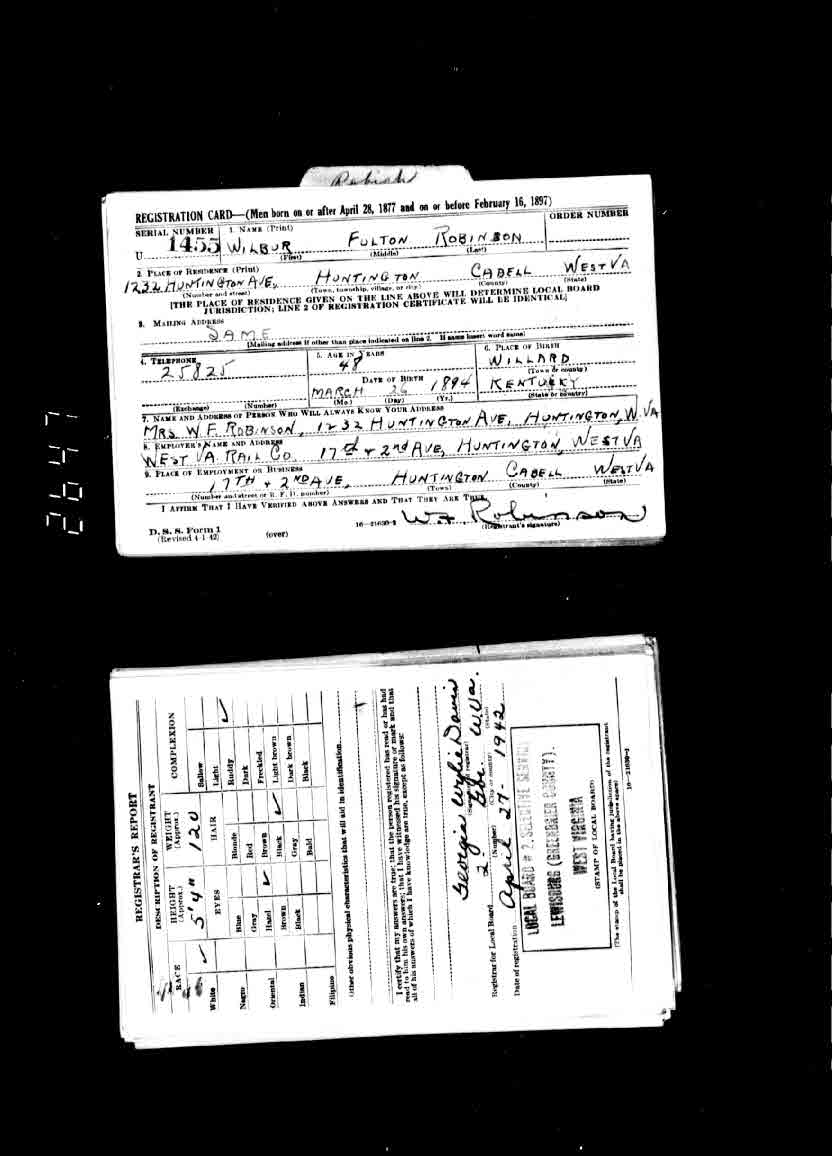 REGISTRATION CARD—(Men born on or after April 28, 1877 and on or before February 16, 1897)
SERIAL NUMBER 1. NAME (Print) ORDER NUMBER
U 1455 WILBUR FULTON ROBINSON
(First) (Middle) (Last)
2. PLACE OF RESIDENCE (Print)
1232 HUNTINGTON AVE, HUNTINGTON CABELL WEST VA
(Number and street) (Town, township, village, or city) (County) (State)
[THE PLACE OF RESIDENCE GIVEN ON THE LINE ABOVE WILL DETERMINE LOCAL BOARD
JURISDICTION; LINE 2 OF REGISTRATION CERTIFICATE WILL BE IDENTICAL]
3. MAILING ADDRESS
SAME
[Mailing address if other than place indicated on line 2. If same insert word same]
4. TELEPHONE 5. AGE IN YEARS 6. PLACE OF BIRTH
25825 48 WILLARD
(Town or county)
DATE OF BIRTH
MARCH 26 1894 KENTUCKY
(Exchange) (Number) (Mo.) (Day) (Yr.) (State or country)
7. NAME AND ADDRESS OF PERSON WHO WILL ALWAYS KNOW YOUR ADDRESS
MRS W. F. ROBINSON, 1232 HUNTINGTON AVE, HUNTINGTON, W. VA
8. EMPLOYER'S NAME AND ADDRESS
WEST VA. RAIL CO. 17th + 2nd AVE, HUNTINGTON, WEST VA
9. PLACE OF EMPLOYMENT OR BUSINESS
17TH + 2ND AVE, HUNTINGTON CABELL WEST VA
(Number and street or R. F. D. number) (Town) (County) (State)
I AFFIRM THAT I HAVE VERIFIED ABOVE ANSWERS AND THAT THEY ARE TRUE.
W F Robinson
D. S. S. Form 1 16—21630-2 (Registrant's signature)
(Revised 4-1-42) (over)
2647
REGISTRAR'S REPORT
DESCRIPTION OF REGISTRANT
RACE HEIGHT (Approx.) WEIGHT (Approx.) COMPLEXION
5'4" 120
White ✓ EYES HAIR Sallow
Light
Negro Blue Blonde Ruddy ✓
Gray Red Dark
Oriental Hazel ✓ Brown Freckled
Brown Black ✓ Light brown
Indian Black Gray Dark brown
Filipino Bald Black
Other obvious physical characteristics that will aid in identification
I certify that my answers are true; that the person registered has read or has had
read to him his own answers; that I have witnessed his signature or mark and that
all of his answers of which I have knowledge are true, except as follows:
Georgia Wylie Davis
Registrar for Local Board 2 Gbr. W. Va.
(Number) (City or county) (State)
Date of registration April 27 1942
LOCAL BOARD # 2, SELECTIVE SERVICE
LEWISBURG (GREENBRIER COUNTY).
WEST VIRGINIA
(STAMP OF LOCAL BOARD)
(The stamp of the Local Board having jurisdiction of the registrant
shall be placed in the above space)
16—21630-2